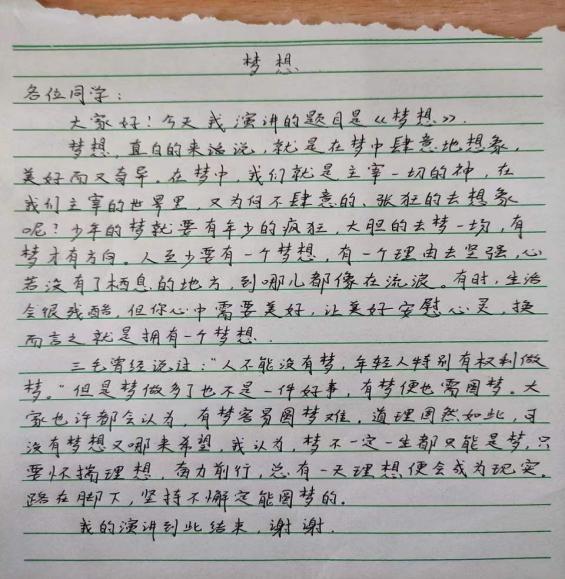 梦想
各位同学：
大家好！今天我演讲的题目是《梦想》.
梦想，直白的来话说，就是在梦中肆意地想象，
美好而又奇异.在梦中，我们就是主宰一切的神，在
我们主宰的世界里，又为何不肆意的、张狂的去想象
呢？少年的梦就要有年少的疯狂，大胆的去梦一场，有
梦才有方向。人至少要有一个梦想，有一个理由去坚强，心
若没有了栖息的地方，到哪儿都像在流浪。有时，生活
会很残酷，但你心中需要美好，让美好安慰心灵，换
而言之就是拥有一个梦想.
三毛曾经说过："人不能没有梦，年轻人特别有权利做
梦。"但是梦做多了也不是一件好事，有梦便也需圆梦。大
家也许都会认为，有梦容易圆梦难，道理固然如此，可
没有梦想又哪来希望，我认为，梦不一定一生都只能是梦，只
要怀揣理想，奋力前行，总有一天理想便会成为现实。
路在脚下，坚持不懈定能圆梦的.
我的演讲到此结束，谢谢.